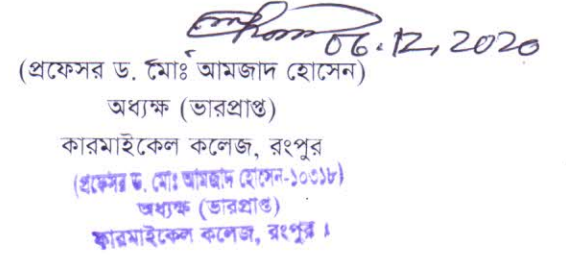 06.12.2020
(প্রফেসর ড. মোঃ আমজাদ হোসেন)
অধ্যক্ষ (ভারপ্রাপ্ত)
কারমাইকেল কলেজ, রংপুর
(প্রফেসর ড. মোঃ আমজাদ হোসেন-১০৩১৮)
অধ্যক্ষ (ভারপ্রাপ্ত)
কারমাইকেল কলেজ, রংপুর ।